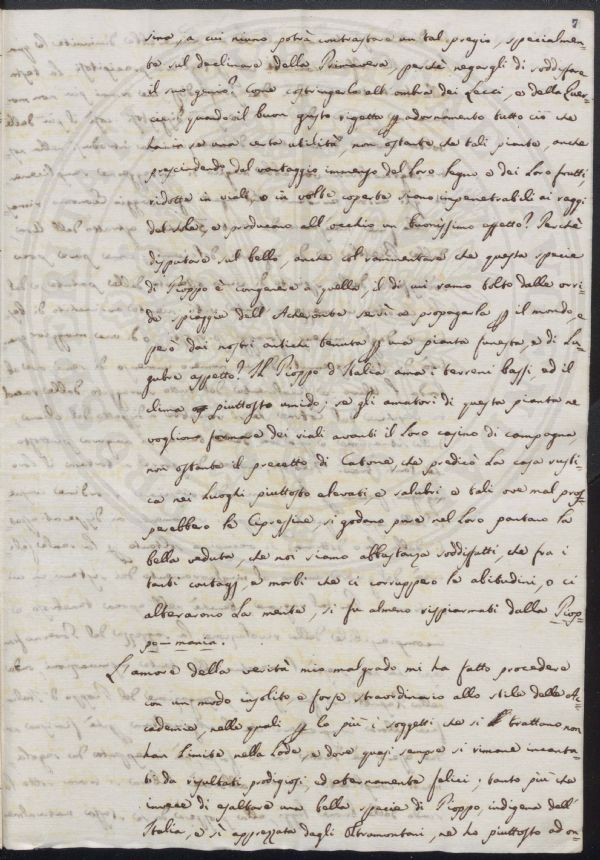 7
sino, a cui niuno potrà contrastare un tal pregio, specialmen=
te sul declinare della Primavera, perchè negargli di soddisfare
il suo genio? Come costringerlo all'ombra dei Lecci, e delle Quer=
cie? quando il buon gusto rigetta per adornamento tutto ciò che
ha in se una certa utilità, non ostante che tali piante, anche
prescindendo dal vantaggio immenso del Loro Legno e dei Loro frutti,
ridotte in viali, o in volte coperte siano impenetrabili ai raggi
del sole, e producano all'occhio un buonissimo effetto? Perchè
disputare sul bello, anche col rammentare che questa specie
di Pioppo è congenere a quella, il di cui ramo tolto dalle orri=
de spiaggie dell'Acheronte servì a propagarla per il mondo, e
però dai nostri antichi tenuta per una pianta funesta, e di Lu=
gubre aspetto? Il Pioppo d'Italia ama i terreni bassi ed il
clima piuttosto umido; se gli amatori di questa pianta ne
vogliono formare dei viali avanti il Loro casino di campagna
non ostante il precetto di Catone che predicò La casa rusti=
ca nei Luoghi piuttosto elevati, e salubri e tali ove mal pros=
perebbero le Cipressine, si godano pure nel Loro pantano La
bella veduta, che noi siamo abbastanza soddisfatti, che fra i
tanti contagj e morbi che ci corruppero le abitudini, o ci
alterarono La mente, si fu almeno rispiarmati dalla Piop=
po-mania.
L'amore della verità mio malgrado mi ha fatto procedere
con un modo insolito, e forse straordinario allo stile delle Ac=
cademie, nelle quali per lo più i soggetti che si trattano non
han Limite nella Lode, e dove quasi sempre si rimane incanta=
ti da resultati prodigiosi, ed eternamente felici; tanto più che
invece di esaltare una bella specie di Pioppo, indigena dell'
Italia, e sì apprezzata dagli Oltramontani, ne ho piuttosto ad on=